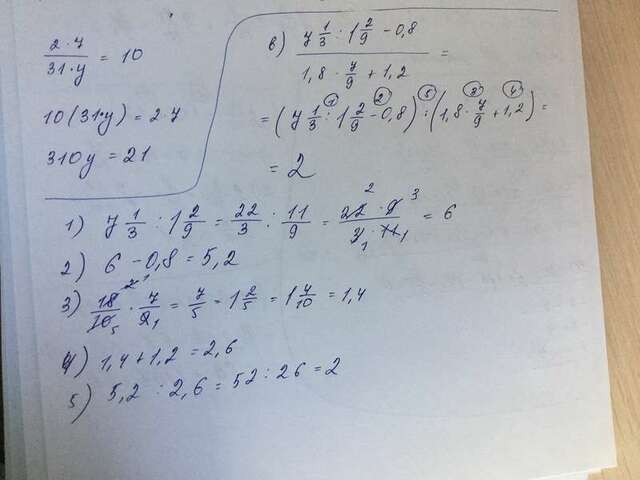 2·7/31·y = 10
10(31·y) = 2·7
310y = 21
в) (7 1/3 : 1 2/9 - 0,8)/(1,8 · 7/9 + 1,2) =
= (7 1/3 : 1 2/9 - 0,8) : (1,8 · 7/9 + 1,2) =
= 2
1) 7 1/3 : 1 2/9 = 22/3 : 11/9 = 22·9/3·11 = 6
2) 6 - 0,8 = 5,2
3) 18/10 · 7/9 = 7/5 = 1 2/5 = 1 4/10 = 1,4
4) 1,4 + 1,2 = 2,6
5) 5,2 : 2,6 = 52 : 26 = 2